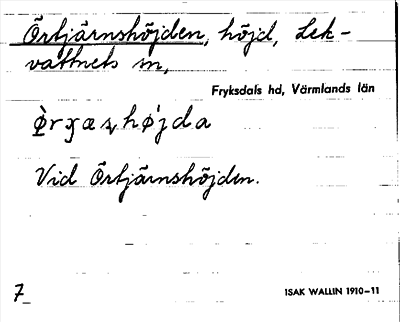 Örtjärnshöjden, höjd, Lek-
vattnets sn,
Fryksdals hd, Värmlands län
Vid Örtjärnshöjden.
7
ISAK WALLIN 1910–11